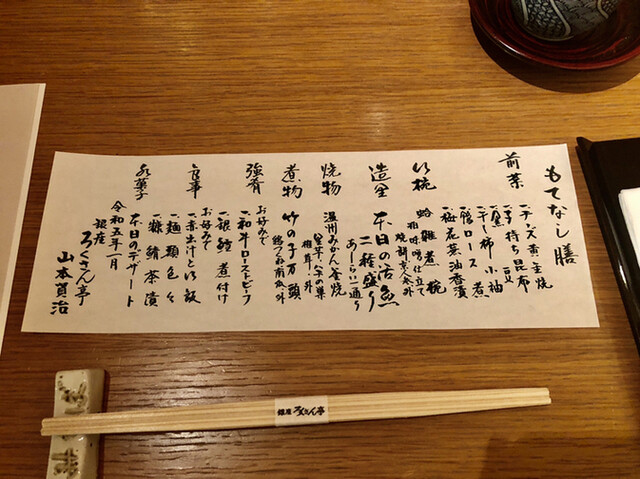 もてなし膳
前菜
一、チーズ黄金焼
一、子持ち昆布
一、黒豆
一、干し柿小袖
一、鴨ロース煮
一、梅花菜油香漬
小椀
蛤雑煮椀
造里
本日の活魚
二種盛り
あしらい一通り
焼物
温州みかん釜焼
煮物
竹の子万頭
強肴
お好みで
一、和牛ローストビーフ
一、銀鱈煮付け
食事
お好みで
一、煮出汁と御飯
一、麺類色々
一、糠鯖茶漬
水菓子
本日のデザート
令和五年一月
銀座
ろくさん亭
銀座 ろくさん亭